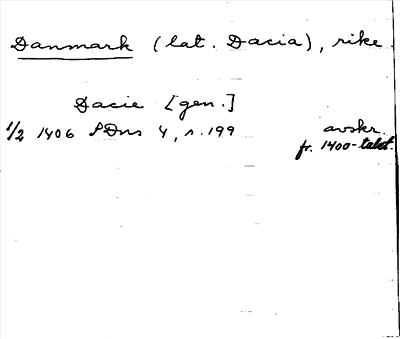 Danmark (lat. Dacia), rike.
Dacie [gen.]
1/2 1406 SDns 4, s. 199 avskr.
fr. 1400-talet.